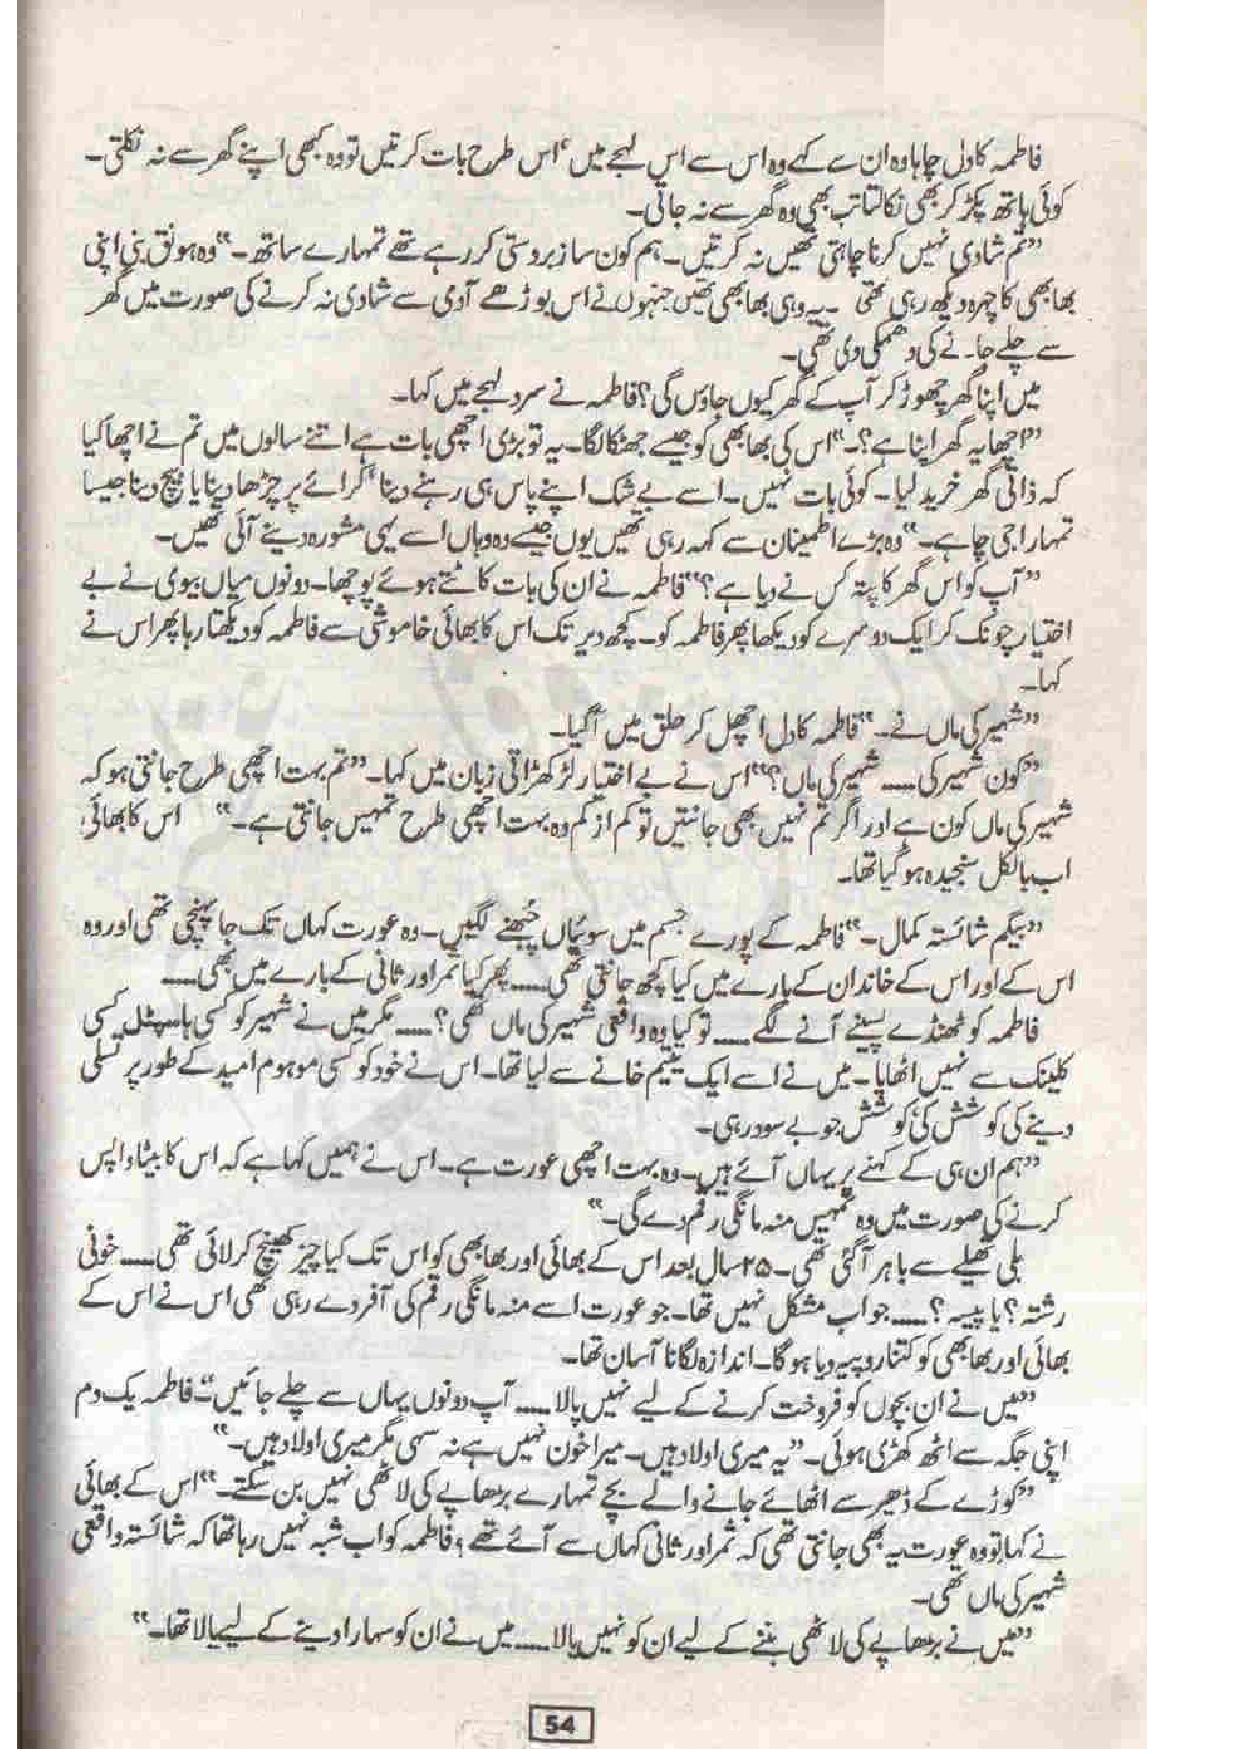 فاطمہ کا دل چاہا وہ ان سے کہے وہ اس سے اس لہجے میں، اس طرح بات کرتیں تو وہ کبھی اپنے گھر سے نہ نکلتی۔
کوئی ہاتھ پکڑ کر بھی نکالتا تب بھی وہ گھر سے نہ جاتی۔
”تم شادی نہیں کرنا چاہتی تھیں نہ کرتیں۔ ہم کون سا زبردستی کر رہے تھے تمہارے ساتھ۔“ وہ ہونق بنی اپنی
بھابھی کا چہرہ دیکھ رہی تھی۔ یہ وہی بھابھی تھیں جنہوں نے اس بوڑھے آدمی سے شادی نہ کرنے کی صورت میں گھر
سے چلے جانے کی دھمکی دی تھی۔
میں اپنا گھر چھوڑ کر آپ کے گھر کیوں جاؤں گی؟ فاطمہ نے سرد لہجے میں کہا۔
”اچھا یہ گھر اپنا ہے؟۔“ اس کی بھابھی کو جیسے جھٹکا لگا۔ یہ تو بڑی اچھی بات ہے اتنے سالوں میں تم نے اچھا کیا
کہ ذاتی گھر خرید لیا۔ کوئی بات نہیں۔ اسے بے شک اپنے پاس ہی رہنے دینا، کرائے پر چڑھا دینا یا بیچ دینا جیسا
تمہارا جی چاہے۔“ وہ بڑے اطمینان سے کہہ رہی تھیں یوں جیسے وہ وہاں اسے یہی مشورہ دینے آئی تھیں۔
”آپ کو اس گھر کا پتہ کس نے دیا ہے؟“ فاطمہ نے ان کی بات کاٹتے ہوئے پوچھا۔ دونوں میاں بیوی نے بے
اختیار چونک کر ایک دوسرے کو دیکھا پھر فاطمہ کو۔ کچھ دیر تک اس کا بھائی خاموشی سے فاطمہ کو دیکھتا رہا پھر اس نے
کہا۔
”شہیر کی ماں نے۔“ فاطمہ کا دل اچھل کر حلق میں آگیا۔
”کون شہیر کی ..... شہیر کی ماں؟“ اس نے بے اختیار لڑکھڑاتی زبان میں کہا۔ ”تم بہت اچھی طرح جانتی ہو کہ
شہیر کی ماں کون ہے اور اگر تم نہیں بھی جانتیں تو کم از کم وہ بہت اچھی طرح تمہیں جانتی ہے۔“ اس کا بھائی
اب بالکل سنجیدہ ہو گیا تھا۔
”بیگم شائستہ کمال۔“ فاطمہ کے پورے جسم میں سوئیاں چُبھنے لگیں۔ وہ عورت کہاں تک جا پہنچی تھی اور وہ
اس کے اور اس کے خاندان کے بارے میں کیا کچھ جانتی تھی..... پھر کیا ثمر اور ثانی کے بارے میں بھی.....
فاطمہ کو ٹھنڈے پسینے آنے لگے..... تو کیا وہ واقعی شہیر کی ماں تھی؟..... مگر میں نے شہیر کو کسی ہاسپٹل کسی
کلینک سے نہیں اٹھایا۔ میں نے اسے ایک یتیم خانے سے لیا تھا۔ اس نے خود کو کسی موہوم امید کے طور پر تسلی
دینے کی کوشش کی، کوشش جو بے سود رہی۔
”ہم ان ہی کے کہنے پر یہاں آئے ہیں۔ وہ بہت اچھی عورت ہے۔ اس نے ہمیں کہا ہے کہ اس کا بیٹا واپس
کرنے کی صورت میں وہ تمہیں منہ مانگی رقم دے گی۔“
بلی تھیلے سے باہر آگئی تھی۔ ۲۵ سال بعد اس کے بھائی اور بھابھی کو اس تک کیا چیز کھینچ کر لائی تھی..... خونی
رشتہ؟ یا پیسہ؟..... جواب مشکل نہیں تھا۔ جو عورت اسے منہ مانگی رقم کی آفر دے رہی تھی اس نے اس کے
بھائی اور بھابھی کو کتنا روپیہ دیا ہوگا۔ اندازہ لگانا آسان تھا۔
”میں نے ان بچوں کو فروخت کرنے کے لیے نہیں پالا..... آپ دونوں یہاں سے چلے جائیں۔“ فاطمہ یک دم
اپنی جگہ سے اٹھ کھڑی ہوئی۔ ”یہ میری اولاد ہیں۔ میرا خون نہیں ہے نہ سہی مگر میری اولاد ہیں۔“
”کوڑے کے ڈھیر سے اٹھائے جانے والے بچے تمہارے بڑھاپے کی لاٹھی نہیں بن سکتے۔“ اس کے بھائی
نے کہا تو وہ عورت یہ بھی جانتی تھی کہ ثمر اور ثانی کہاں سے آئے تھے؟ فاطمہ کو اب شبہ نہیں رہا تھا کہ شائستہ واقعی
شہیر کی ماں تھی۔
”میں نے بڑھاپے کی لاٹھی بننے کے لیے ان کو نہیں پالا..... میں نے ان کو سہارا دینے کے لیے پالا تھا۔“
54